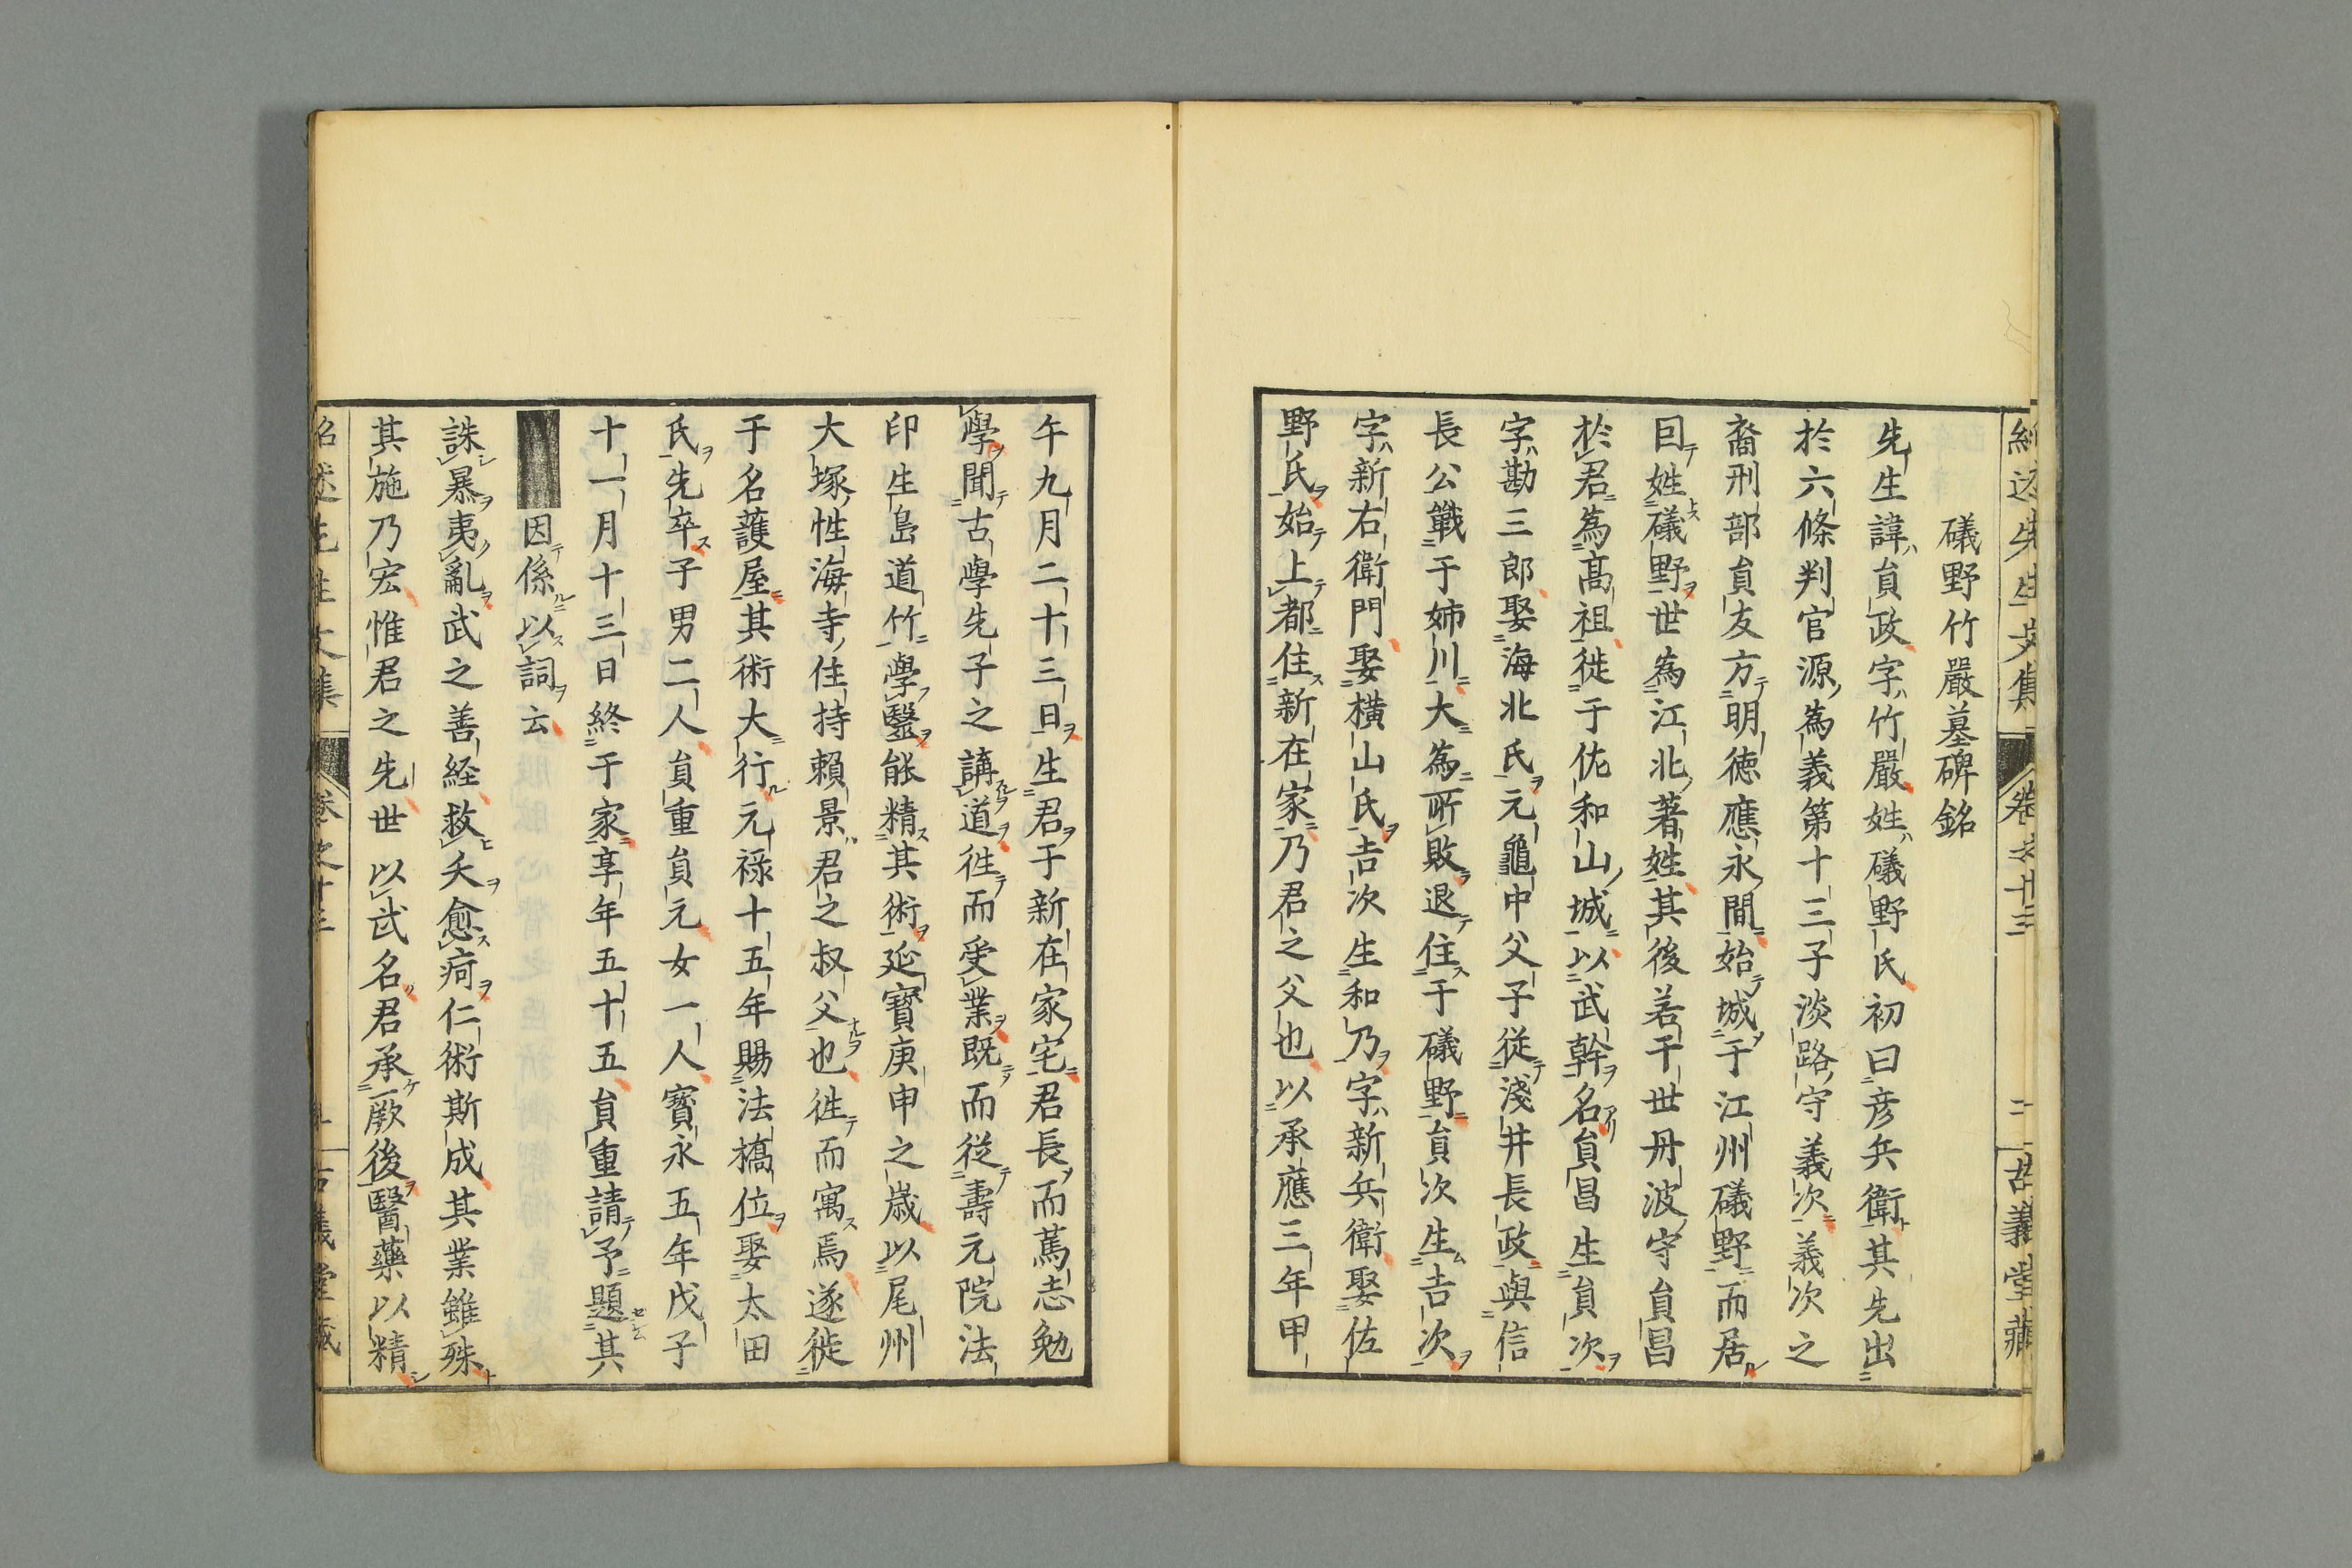 礒野竹嚴墓碑銘
先生諱貟政字竹嚴姓礒野氏初曰彦兵衛其先出
於六條判官源為義第十三子淡路守義次義次之
裔刑部貟友方明徳應永間始城于江州礒野而居
囙姓礒野世為江北著姓其後若干世丹波守貟昌
於君為髙祖徙于佐和山城以武幹名貟昌生貟次
字勘三郎娶海北氏元龜中父子従淺井長政與信
長公戰于姉川大為所敗退住于礒野貟次生吉次
字新右衛門娶横山氏吉次生和乃字新兵衛娶佐
野氏始上都住新在家乃君之父也以承應三年甲
午九月二十三日生君于新在家宅君長而蔿志勉
學聞古學先子之講道徃而受業既而従壽元院法
印生島道竹學毉能精其術延寳庚申之歳以尾州
大塚性海寺住持頼景君之叔父也徃而寓焉遂徙
于名護屋其術大行元禄十五年賜法橋位娶太田
氏先卒子男二人貟重貟元女一人寳永五年戊子
十一月十三日終于家享年五十五貟重請予題其
因係以詞云
誅暴夷亂武之善経救夭愈痾仁術斯成其業雖殊
其施乃宏惟君之先世以武名君承厥後醫藥以精
古義堂藏